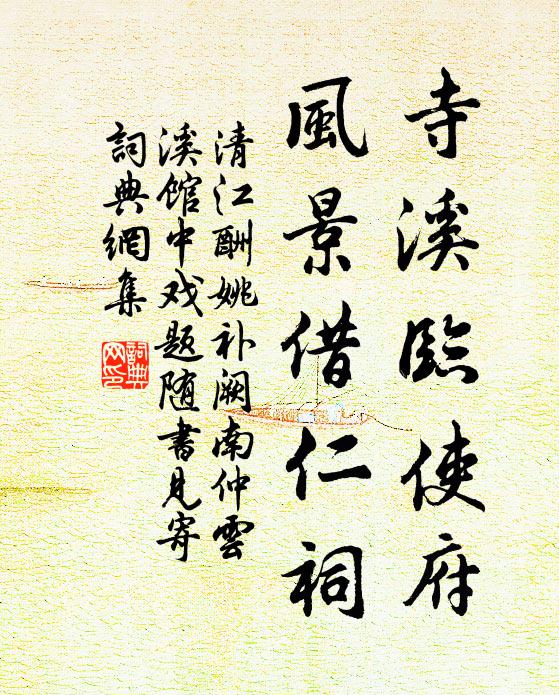 寺溪臨使府
風景借仁祠
清江酬姚补阙南仲雲
溪馆中戏题随書見寄
詞典網集
詞典
网印